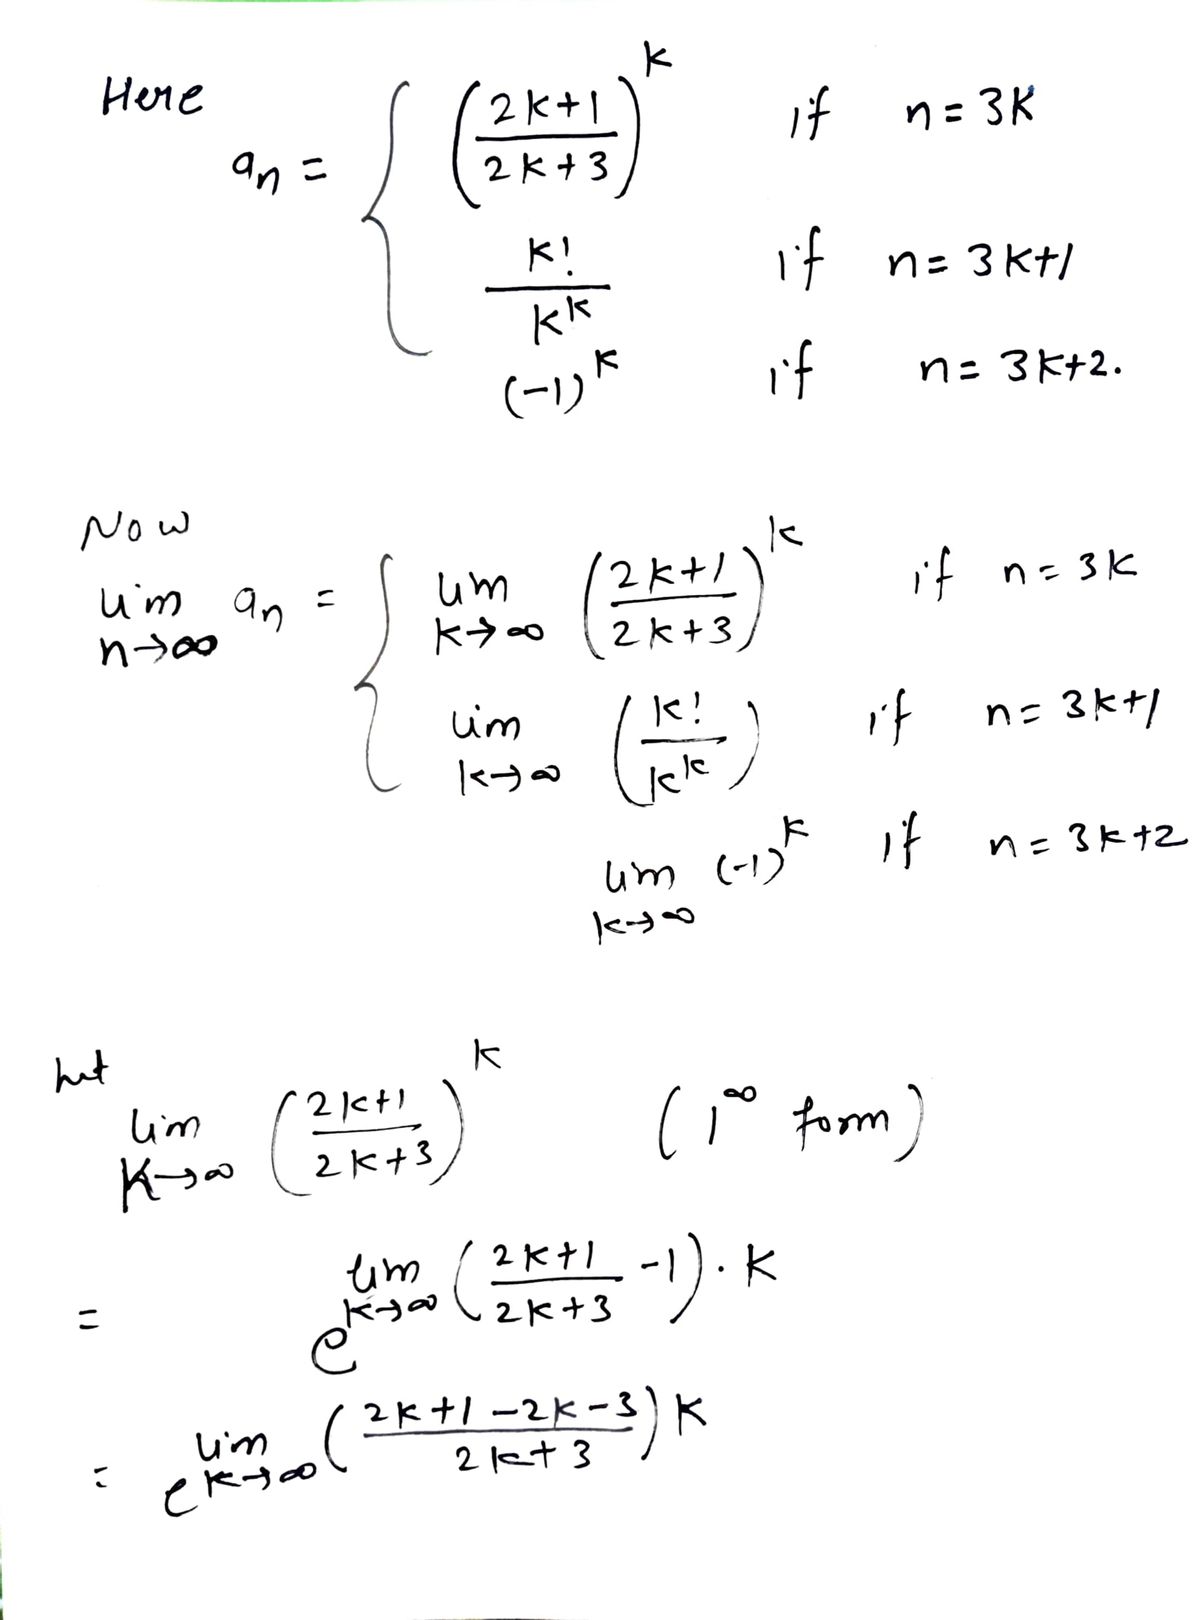 Here
a_n = { ((2k+1)/(2k+3))^k if n = 3k
k!/k^k if n = 3k+1
(-1)^k if n = 3k+2.
Now
lim_{n→∞} a_n = { lim_{k→∞} ((2k+1)/(2k+3))^k if n = 3k
lim_{k→∞} (k!/k^k) if n = 3k+1
lim_{k→∞} (-1)^k if n = 3k+2
Let
lim_{k→∞} ((2k+1)/(2k+3))^k (1^∞ form)
= e^{lim_{k→∞} ((2k+1)/(2k+3) - 1) · k}
= e^{lim_{k→∞} ((2k+1-2k-3)/(2k+3)) k}